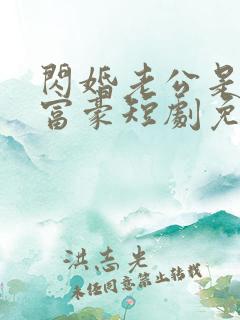 閃婚老公是
富豪短劇免
洪志光
未经同意禁止转载